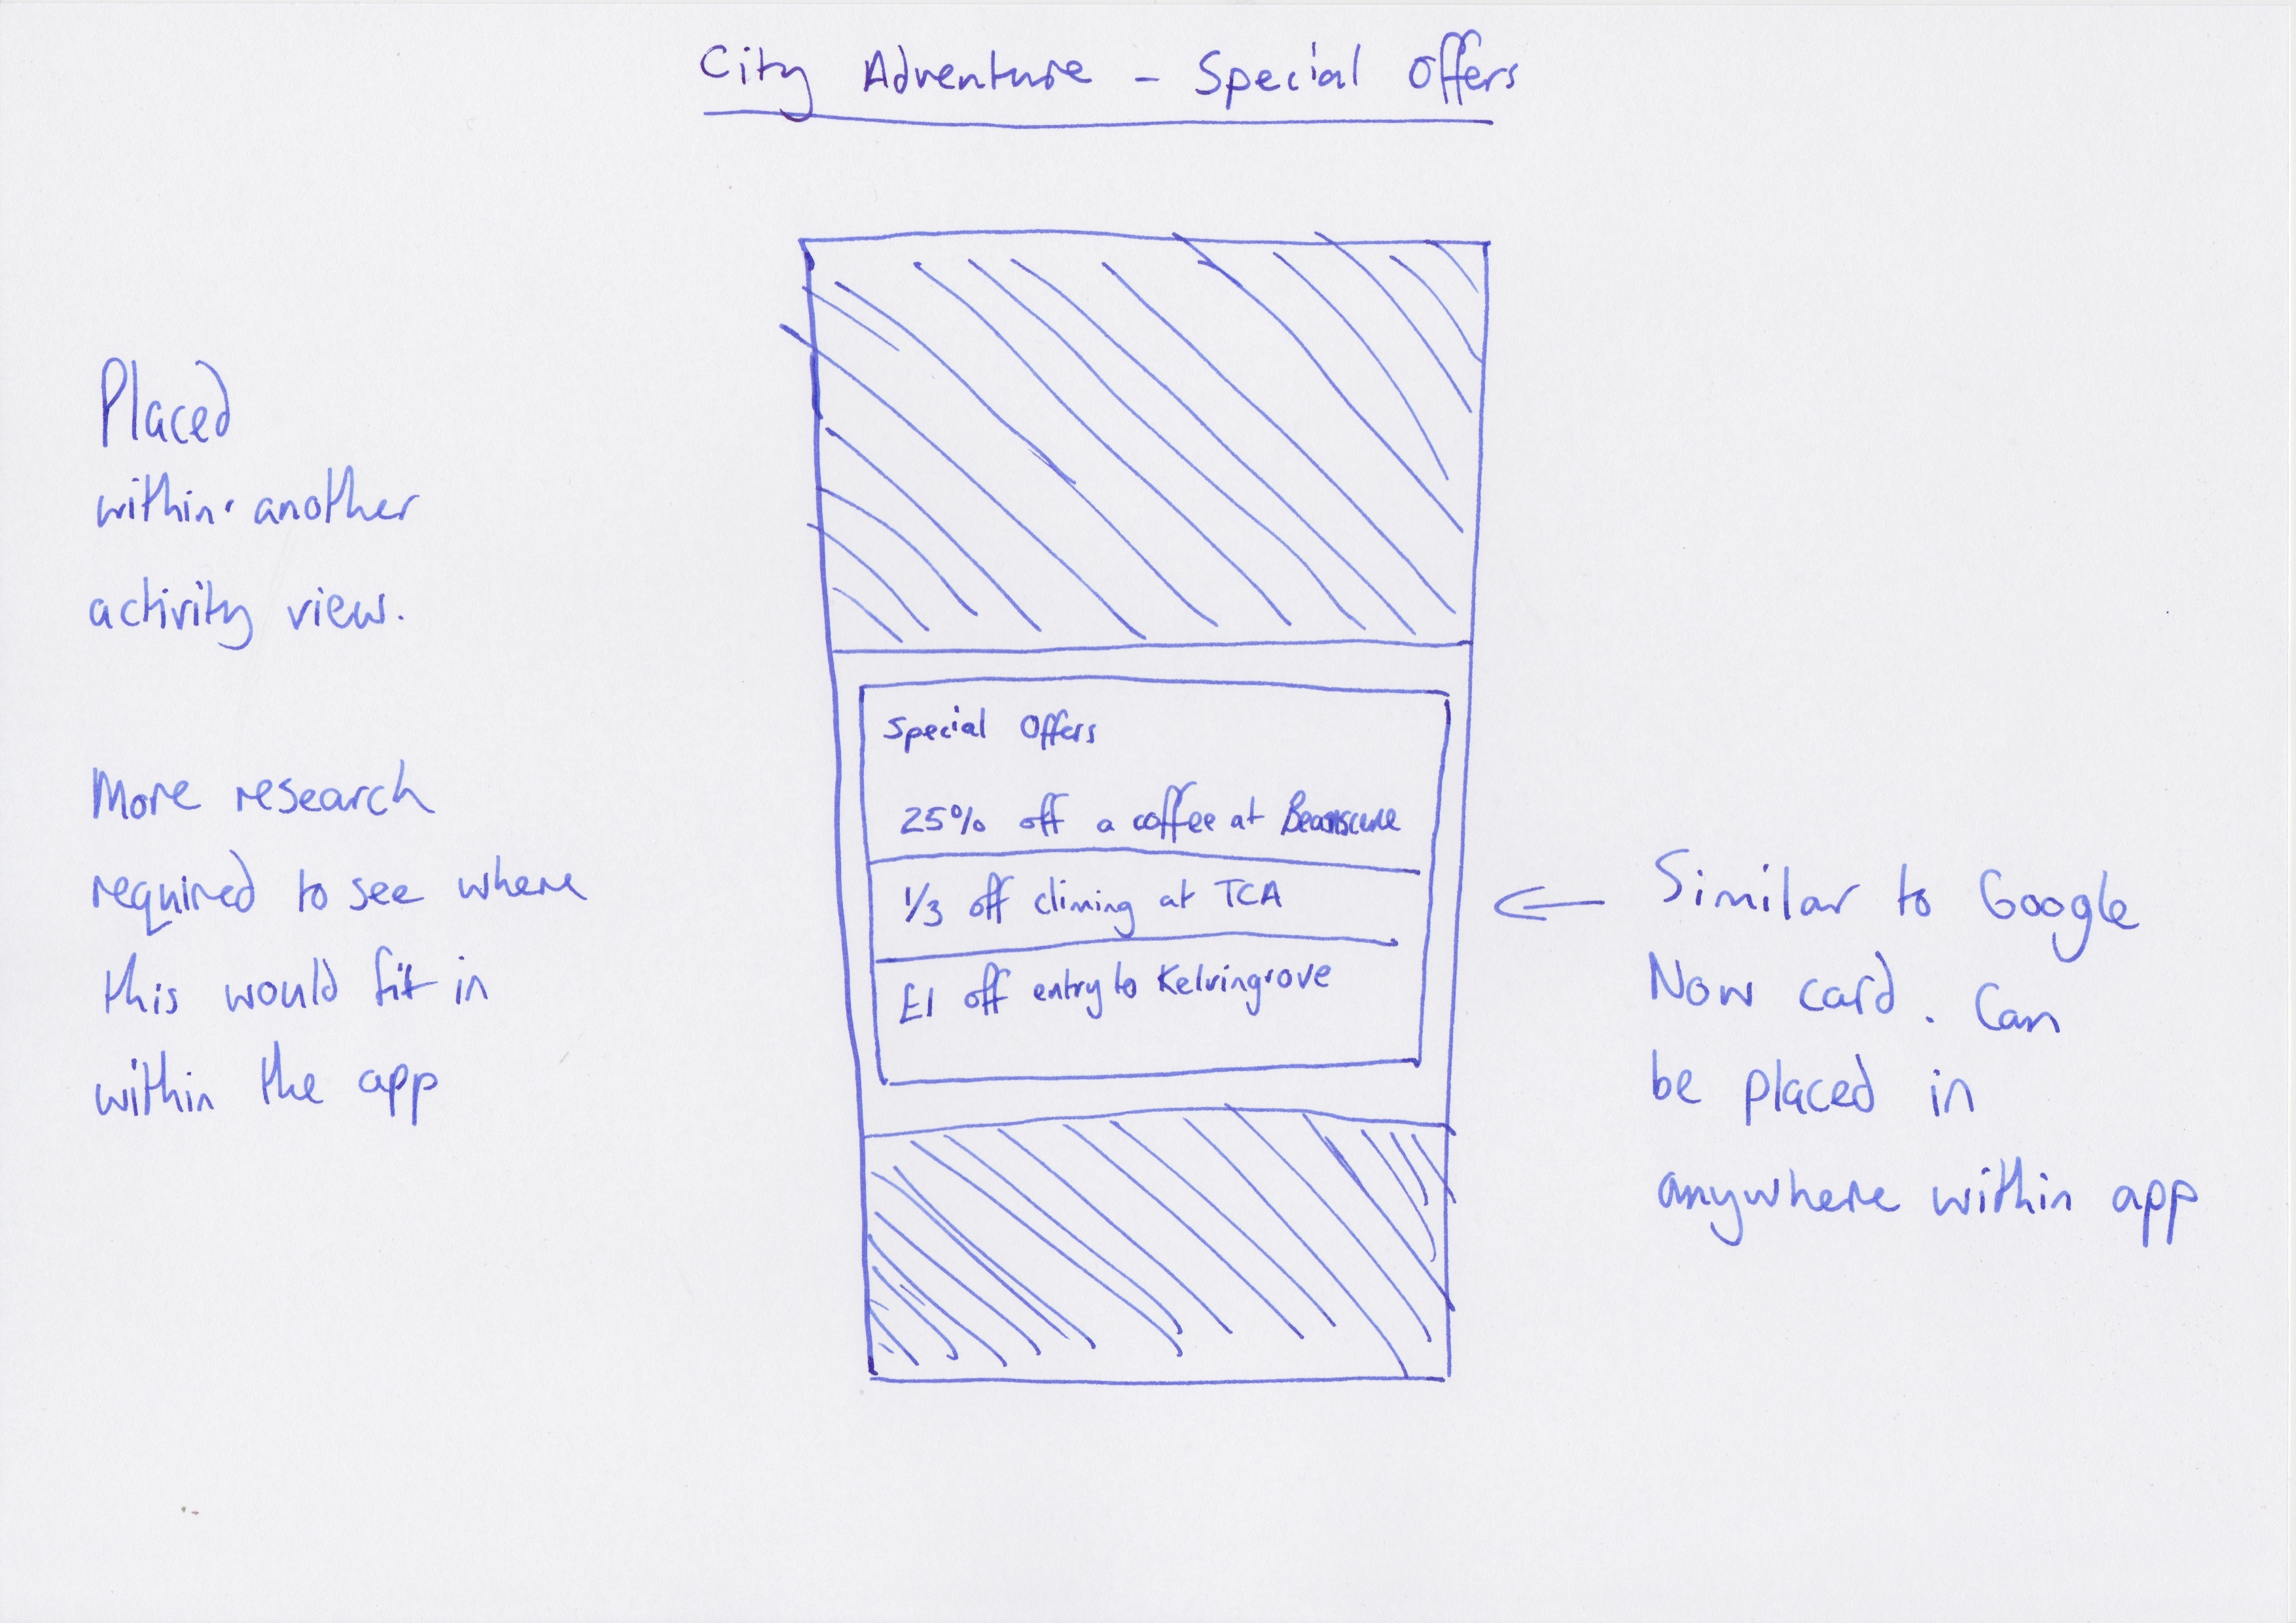 City Adventure - Special Offers
Placed
within another
activity view.
More research
required to see where
this would fit in
within the app
Special Offers
25% off a coffee at
1/3 off climing at TCA
£1 off entry to Kelvingrove
Similar to Google
Now card. Can
be placed in
anywhere within app